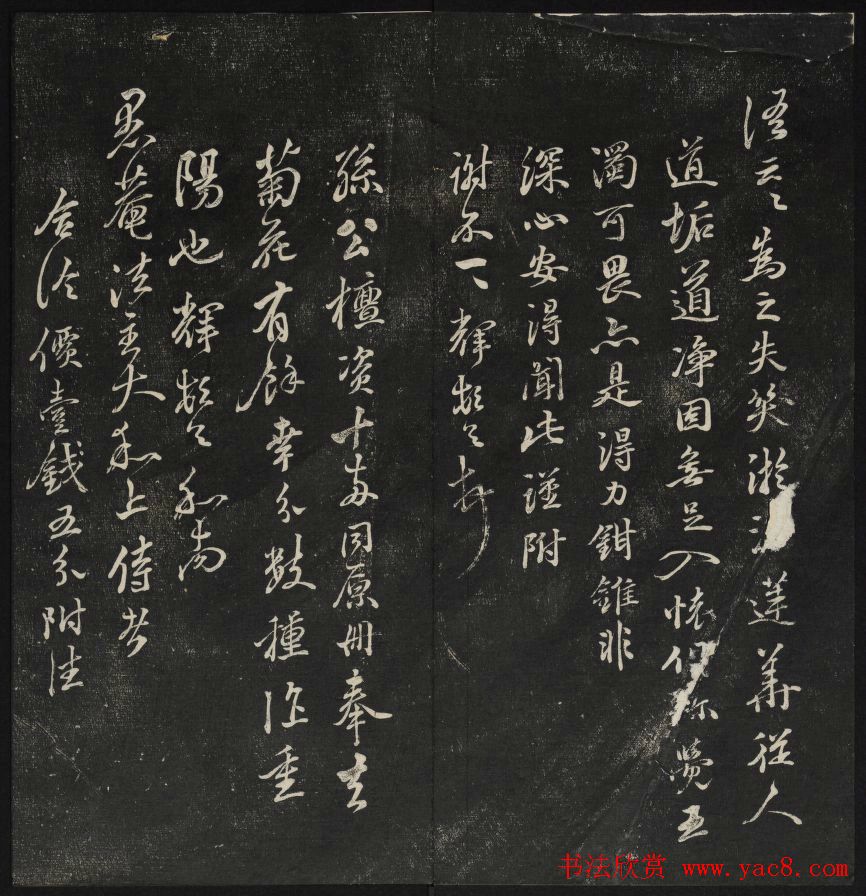 語云云為之失笑淤蓮華從人
道垢道淨因無足入懷但弥覺五
濁可畏亦是得力鉗錐非
深心安得聞此謹附
謝不一一輝
孫公檀資十兩同原冊奉去
菊花有餘幸分數種作重
陽也輝和南
愚菴法主大和上侍者
價壹錢五分附往
书法欣赏 www.yac8.com